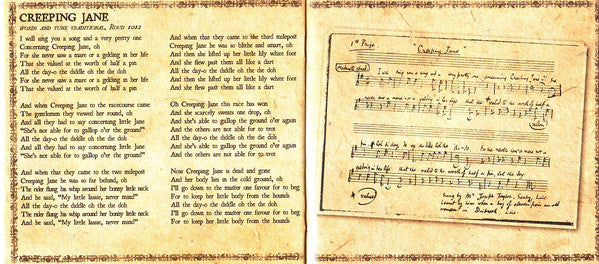 CREEPING JANE
WORDS AND TUNE TRADITIONAL, ROUD 1012
I will sing you a song and a very pretty one
Concerning Creeping Jane, oh
For she never saw a mare or a gelding in her life
That she valued at the worth of half a pin
All the day-o the diddle oh the die doh
For she never saw a mare or a gelding in her life
That she valued at the worth of half a pin
And when Creeping Jane to the racecourse came
The gentlemen they viewed her round, oh
And all they had to say concerning little Jane
"She's not able for to gallop o'er the ground"
All the day-o the diddle oh the die doh
And all they had to say concerning little Jane
"She's not able for to gallop o'er the ground"
And when that they came to the two milepost
Creeping Jane he was so far behind, oh
The rider flung his whip around her bonny little neck
And he said, "My little lassie, never mind!"
All the day-o the diddle oh the die doh
The rider flung his whip around her bonny little neck
And he said, "My little lassie, never mind!"
And when that they came to the third milepost
Creeping Jane she was so blithe and smart, oh
And then she lifted up her little lily white foot
And she flew past them all like a dart
All the day-o the diddle oh the die doh
And then she lifted up her little lily white foot
And she flew past them all like a dart
Oh Creeping Jane this race has won
And she scarcely sweats one drop, oh
And she's able to gallop the ground o'er again
And the others are not able for to trot
All the day-o the diddle oh the die doh
And she's able to gallop the ground o'er again
And the others are not able for to trot
Now Creeping Jane is dead and gone
And her body lies in the cold ground, oh
I'll go down to the master one favour for to beg
For to keep her little body from the hounds
All the day-o the diddle oh the die doh
I'll go down to the master one favour for to beg
For to keep her little body from the hounds
1st Prize
"Creeping Jane"
I will sing you a song and a very pretty one concerning Creeping Jane
saw a mare or a gelding in her life that she * valued to the worth of half a
* value
Sung by Mr Joseph Taylor, Saxby, Lincs
Learnt by him when a boy of eleven from an old
woman in